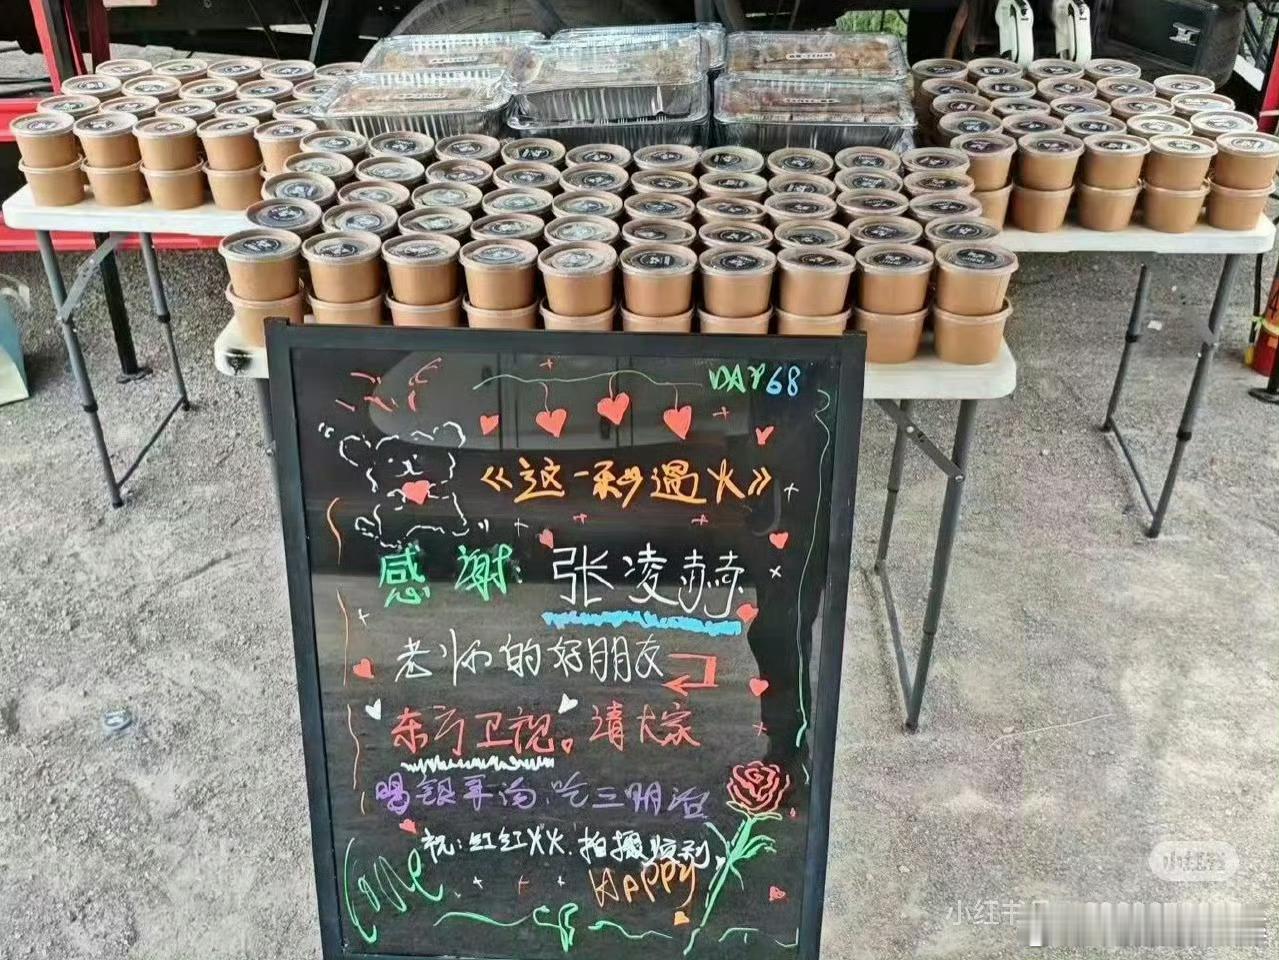 DAY68
《这一秒过火》
感谢:张凌赫
老师的好朋友
东方卫视。请大家
喝银耳汤、吃三明治
祝:红红火火.拍摄顺利
Love
HAPPY
小红书